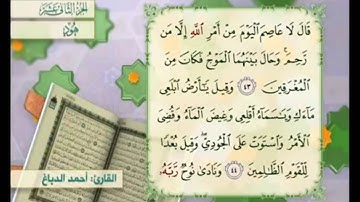 الجزء الثاني عشر
هُود
قَالَ لَا عَاصِمَ ٱلْيَوْمَ مِنْ أَمْرِ ٱللَّهِ إِلَّا مَن
رَّحِمَ ۚ وَحَالَ بَيْنَهُمَا ٱلْمَوْجُ فَكَانَ مِنَ
ٱلْمُغْرَقِينَ ٤٣ وَقِيلَ يَٰٓأَرْضُ ٱبْلَعِى
مَآءَكِ وَيَٰسَمَآءُ أَقْلِعِى وَغِيضَ ٱلْمَآءُ وَقُضِىَ
ٱلْأَمْرُ وَٱسْتَوَتْ عَلَى ٱلْجُودِىِّ ۖ وَقِيلَ بُعْدًا
لِّلْقَوْمِ ٱلظَّٰلِمِينَ ٤٤ وَنَادَىٰ نُوحٌ رَّبَّهُۥ
القارئ: أحمد الدباغ